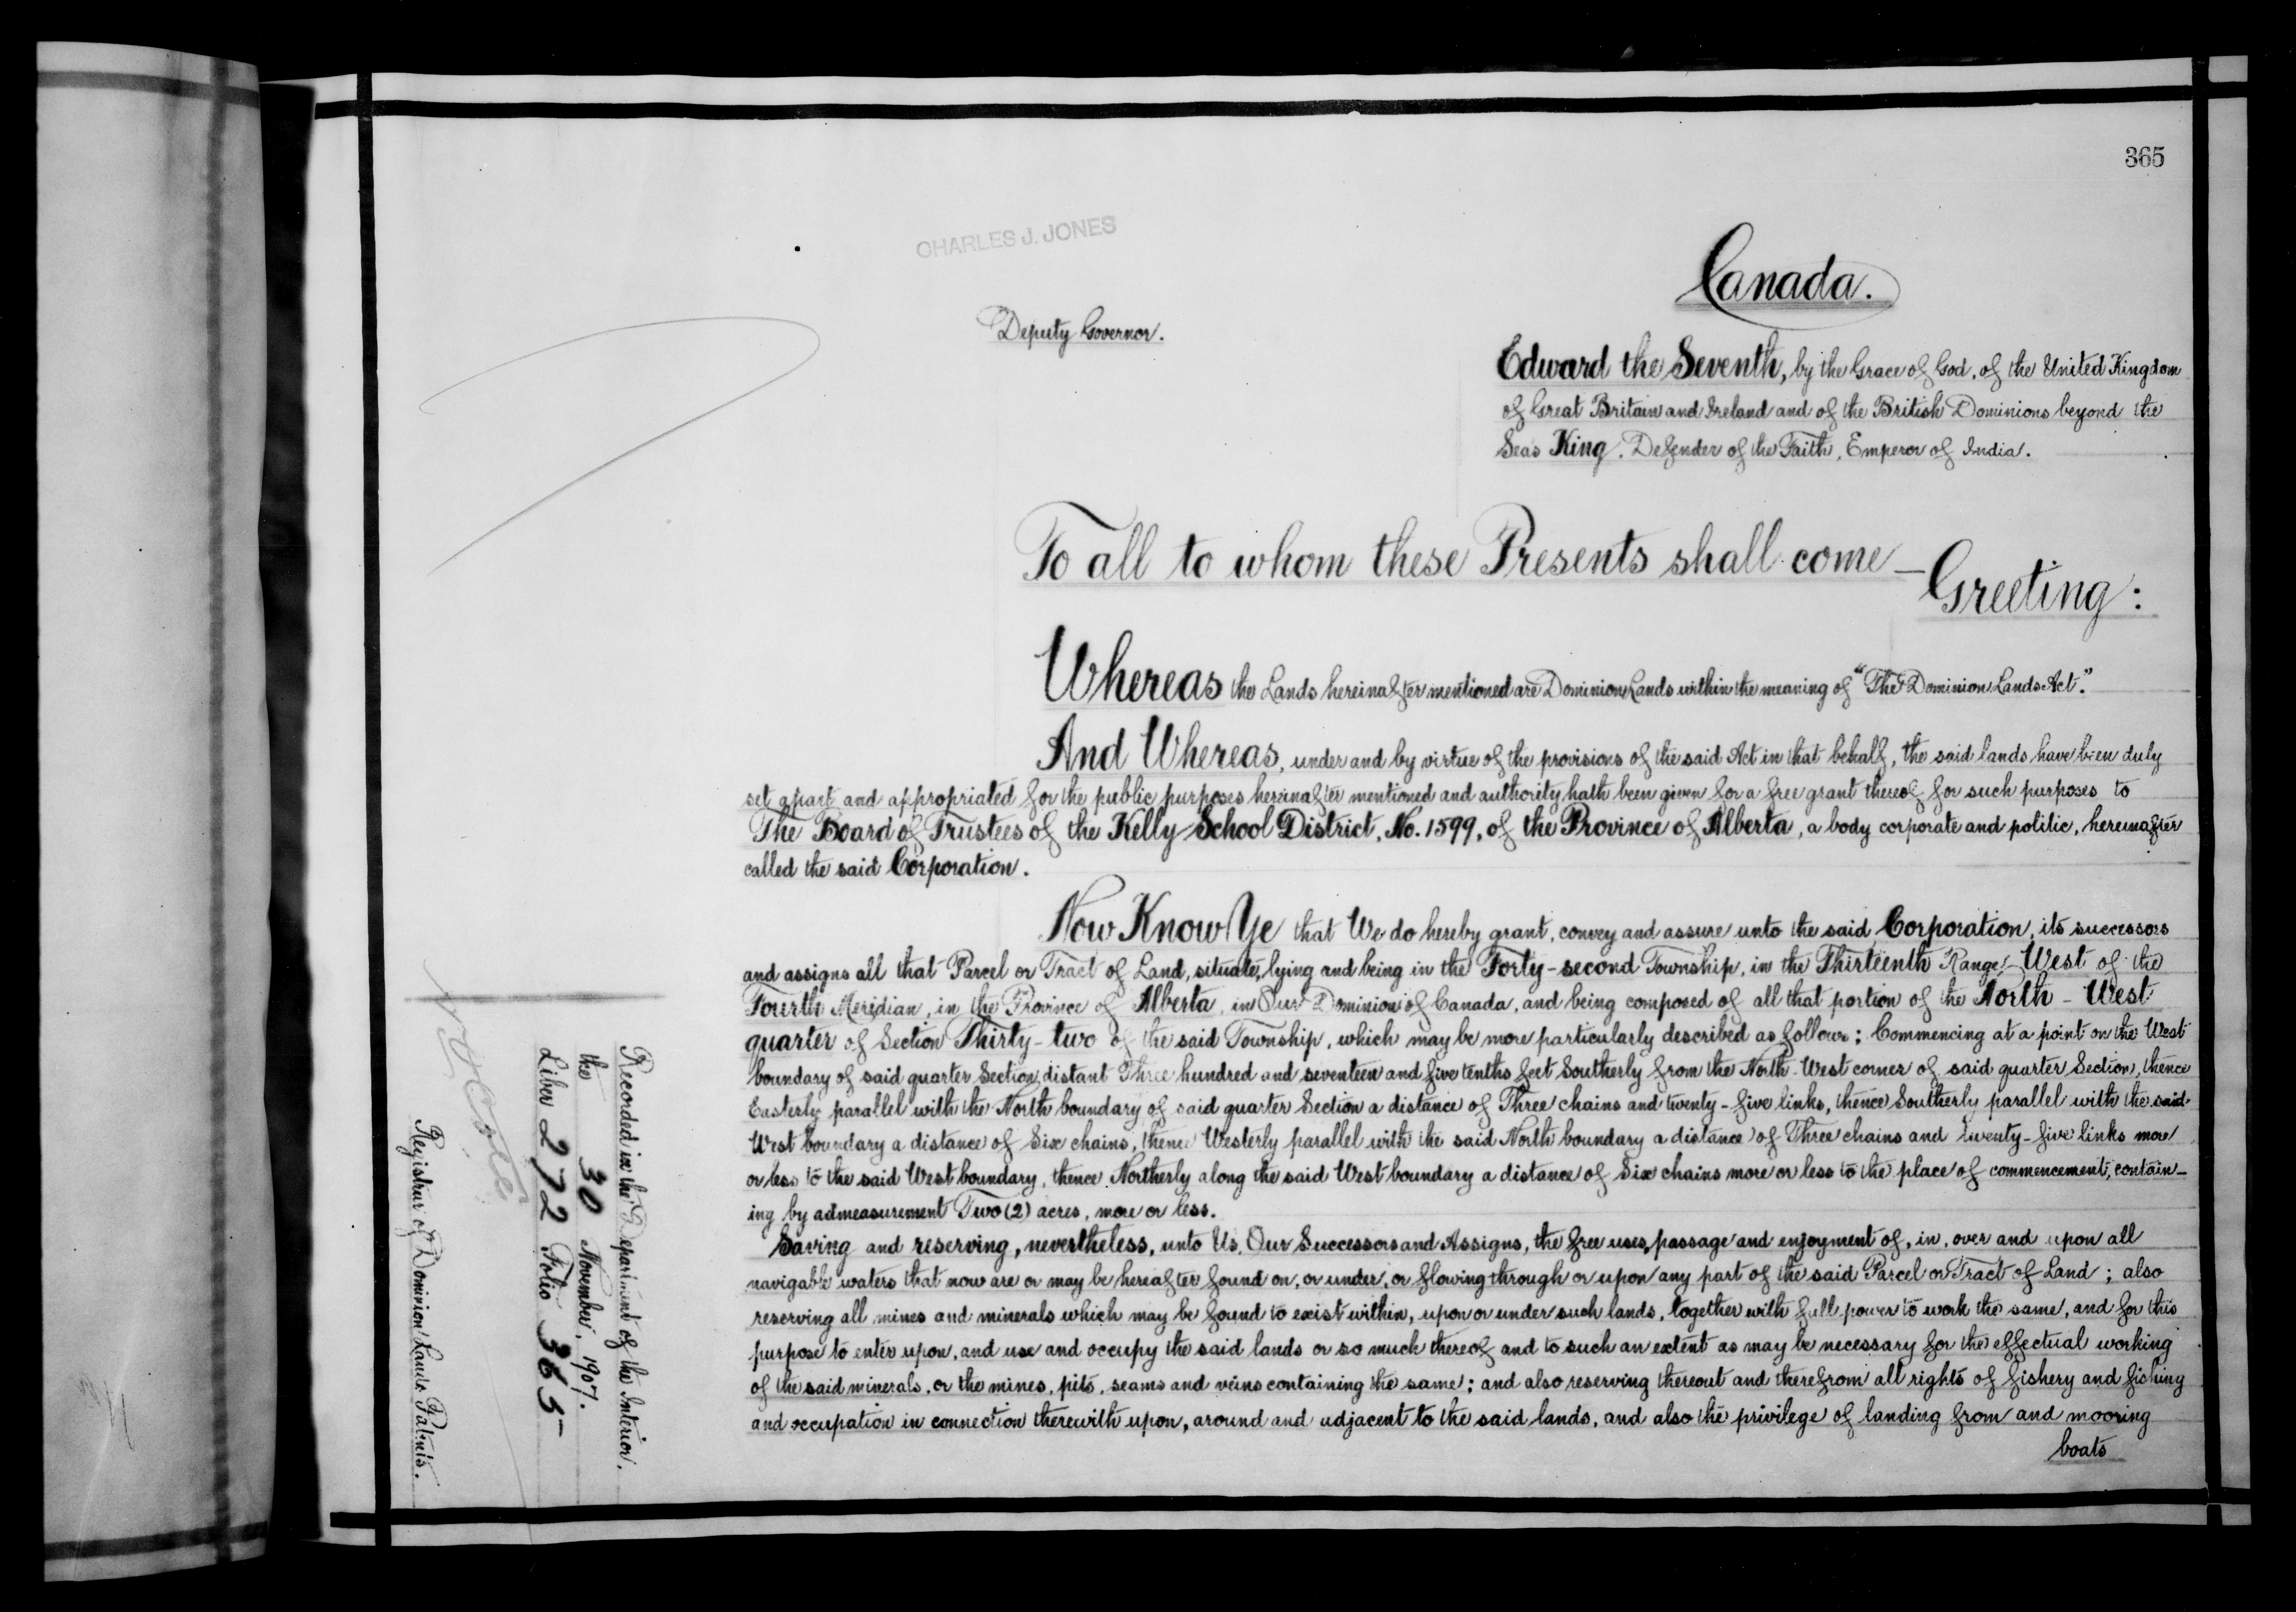 365
CHARLES J. JONES
Deputy Governor.
Canada.
Edward the Seventh, by the Grace of God, of the United Kingdom
of Great Britain and Ireland and of the British Dominions beyond the
Seas King, Defender of the Faith, Emperor of India.
To all to whom these Presents shall come —
Greeting:
Whereas the Lands hereinafter mentioned are Dominion Lands within the meaning of "The Dominion Lands Act."
And Whereas, under and by virtue of the provisions of the said Act in that behalf, the said lands have been duly
set apart and appropriated for the public purposes hereinafter mentioned and authority hath been given for a free grant thereof for such purposes to
The Board of Trustees of the Kelly School District, No. 1599, of the Province of Alberta, a body corporate and politic, hereinafter
called the said Corporation.
Now Know Ye that We do hereby grant, convey and assure unto the said Corporation, its successors
and assigns all that Parcel or Tract of Land, situate, lying and being in the Forty-second Township, in the Thirteenth Range, West of the
Fourth Meridian, in the Province of Alberta, in Our Dominion of Canada, and being composed of all that portion of the North-West
quarter of Section Thirty-two of the said Township, which may be more particularly described as follows; Commencing at a point on the West
boundary of said quarter Section, distant Three hundred and seventeen and five tenths feet Southerly from the North-West corner of said quarter Section, thence
Easterly parallel with the North boundary of said quarter Section a distance of Three chains and twenty-five links, thence Southerly parallel with the said
West boundary a distance of Six chains, thence Westerly parallel with the said North boundary a distance of Three chains and twenty-five links more
or less to the said West boundary, thence Northerly along the said West boundary a distance of Six chains more or less to the place of commencement, contain-
ing by admeasurement Two (2) acres, more or less.
Saving and reserving, nevertheless, unto Us, Our Successors and Assigns, the free uses, passage and enjoyment of, in, over and upon all
navigable waters that now are or may be hereafter found on, or under, or flowing through or upon any part of the said Parcel or Tract of Land; also
reserving all mines and minerals which may be found to exist within, upon or under such lands, together with full power to work the same, and for this
purpose to enter upon, and use and occupy the said lands or so much thereof and to such an extent as may be necessary for the effectual working
of the said minerals, or the mines, pits, seams and veins containing the same; and also reserving thereout and therefrom all rights of fishery and fishing
and occupation in connection therewith upon, around and adjacent to the said lands, and also the privilege of landing from and mooring
boats
Recorded in the Department of the Interior,
the 30 November, 1907.
Liber 272 Folio 365
Registrar of Dominion Lands Patents.